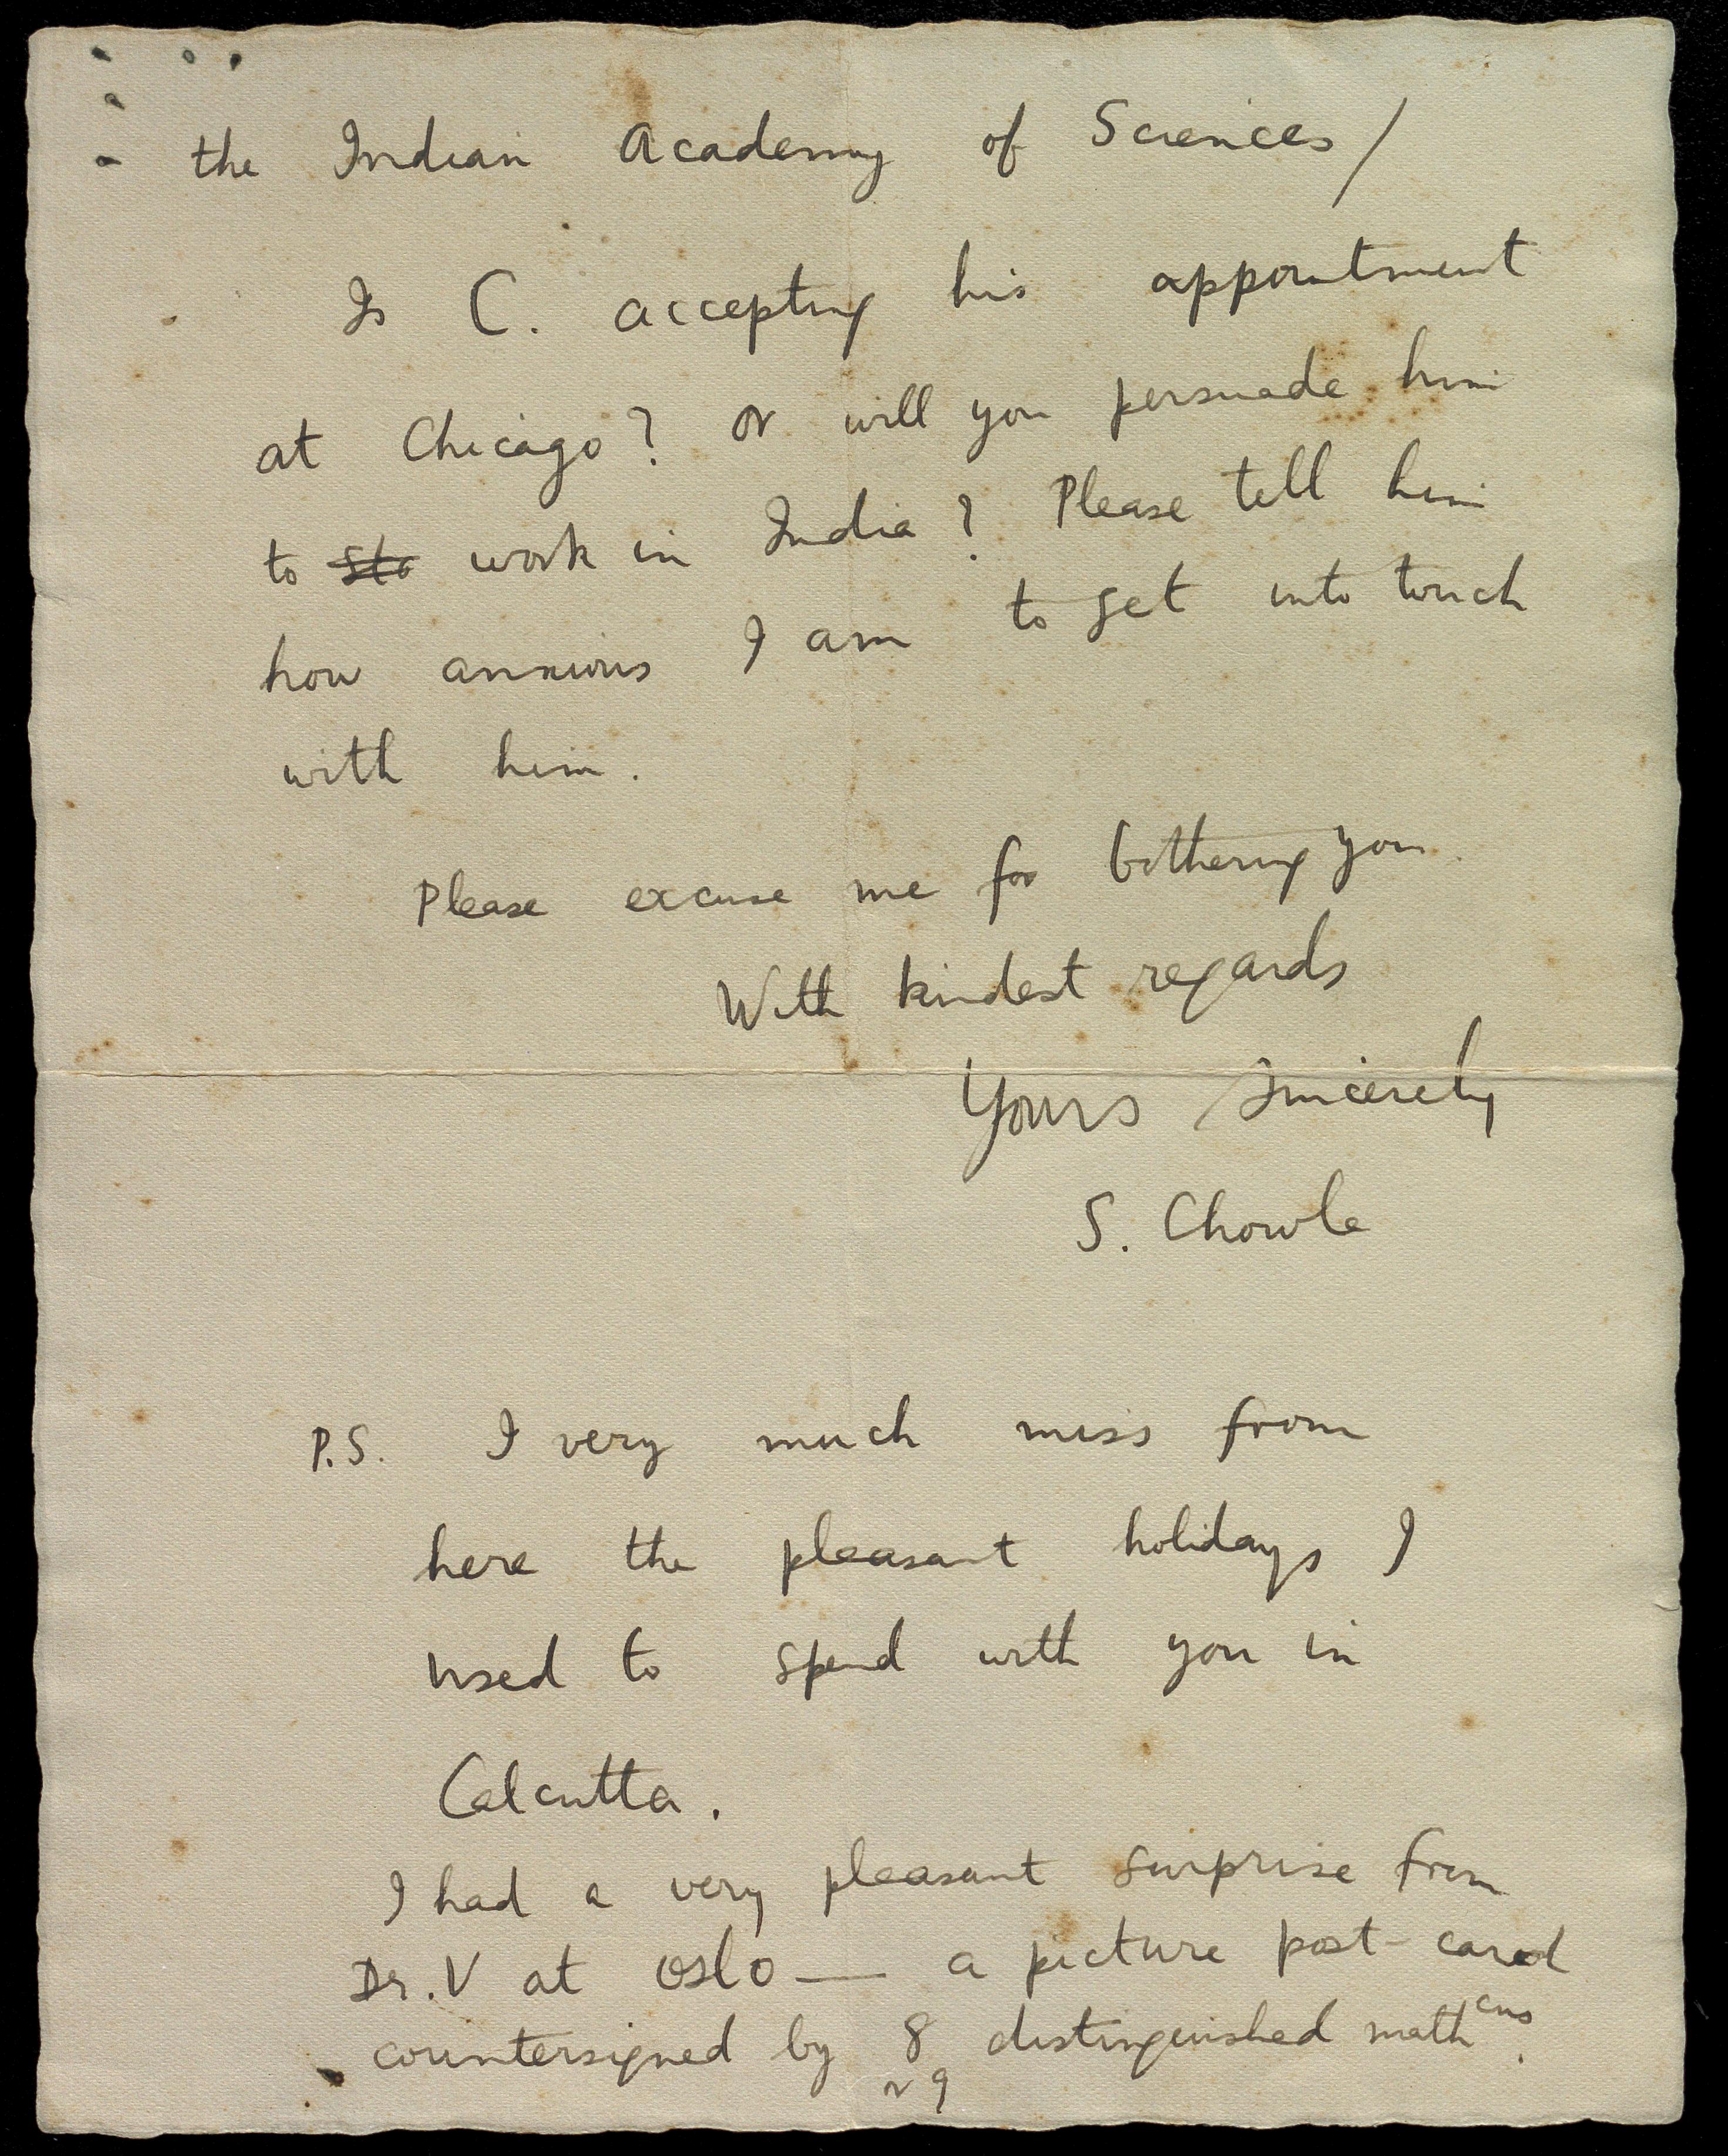 the Indian Academy of Sciences/
Is C. accepting his appointment
at Chicago? or will you persuade him
to sta work in India? Please tell him
how anxious I am to get into touch
with him.
Please excuse me for bothering you.
With kindest regards
Yours sincerely
S. Chowla
P.S. I very much miss from
here the pleasant holidays I
used to spend with you in
Calcutta.
I had a very pleasant surprise from
Dr. V at Oslo — a picture post-card
countersigned by 8 distinguished math cns.
or 9